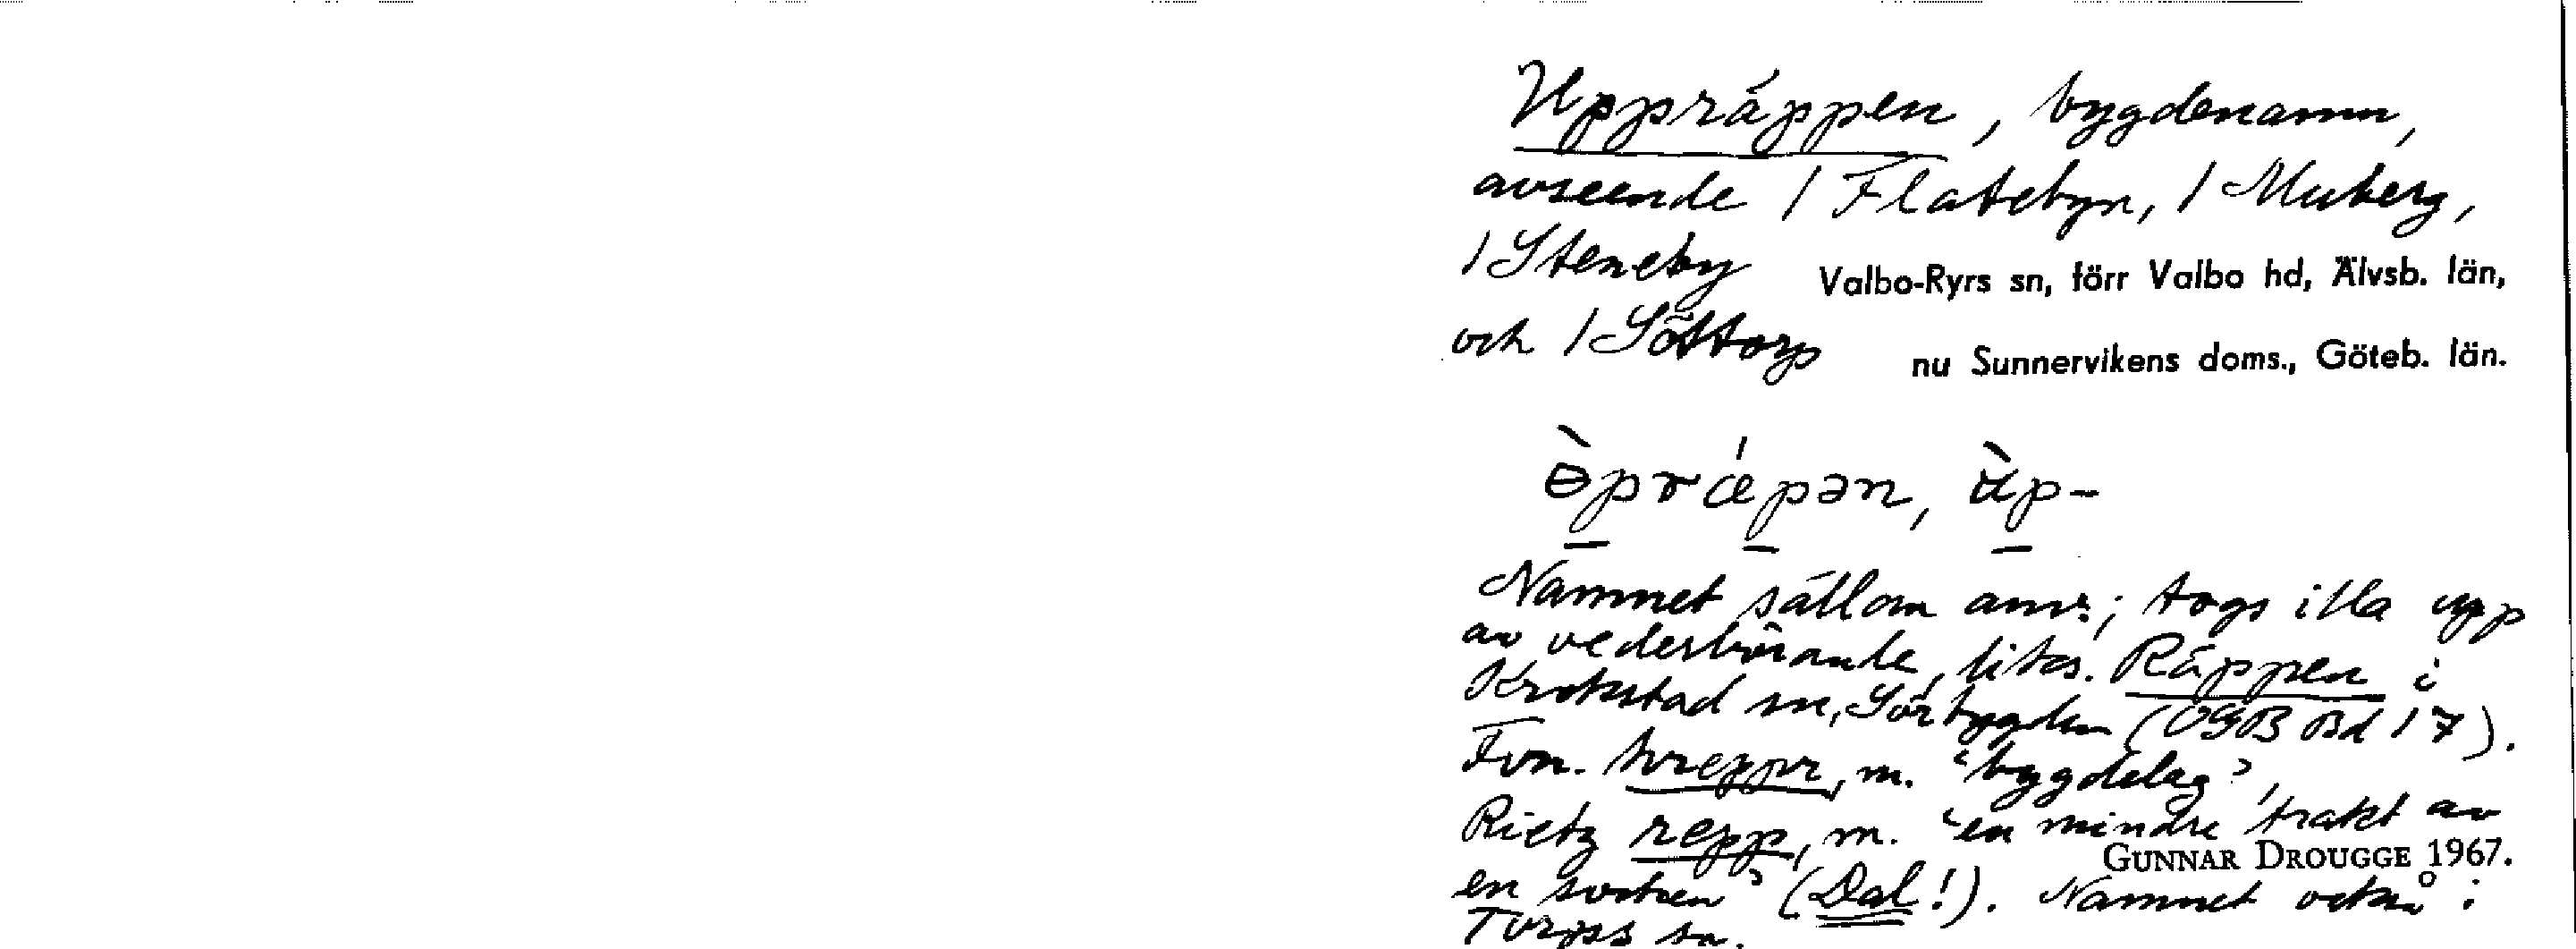 Uppräppen, bygdenamn,
avseende 1 Flatebyn, 1 Muberg,
1 Steneby Valbo-Ryrs sn, förr Valbo hd, Älvsb. län,
och 1 Söttorp nu Sunnervikens doms., Göteb. län.
Namnet sällan anv.; togs illa upp
av vederbörande, liks. Räppen i
Krokstad sn, Sörbygden (OGB Bd 17).
Fvn. hreppr, m. "bygdelag",
Rietz repp, m. "en mindre trakt av
GUNNAR DROUGGE 1967.
en socken" (Dal!). Namnet också i
sn.